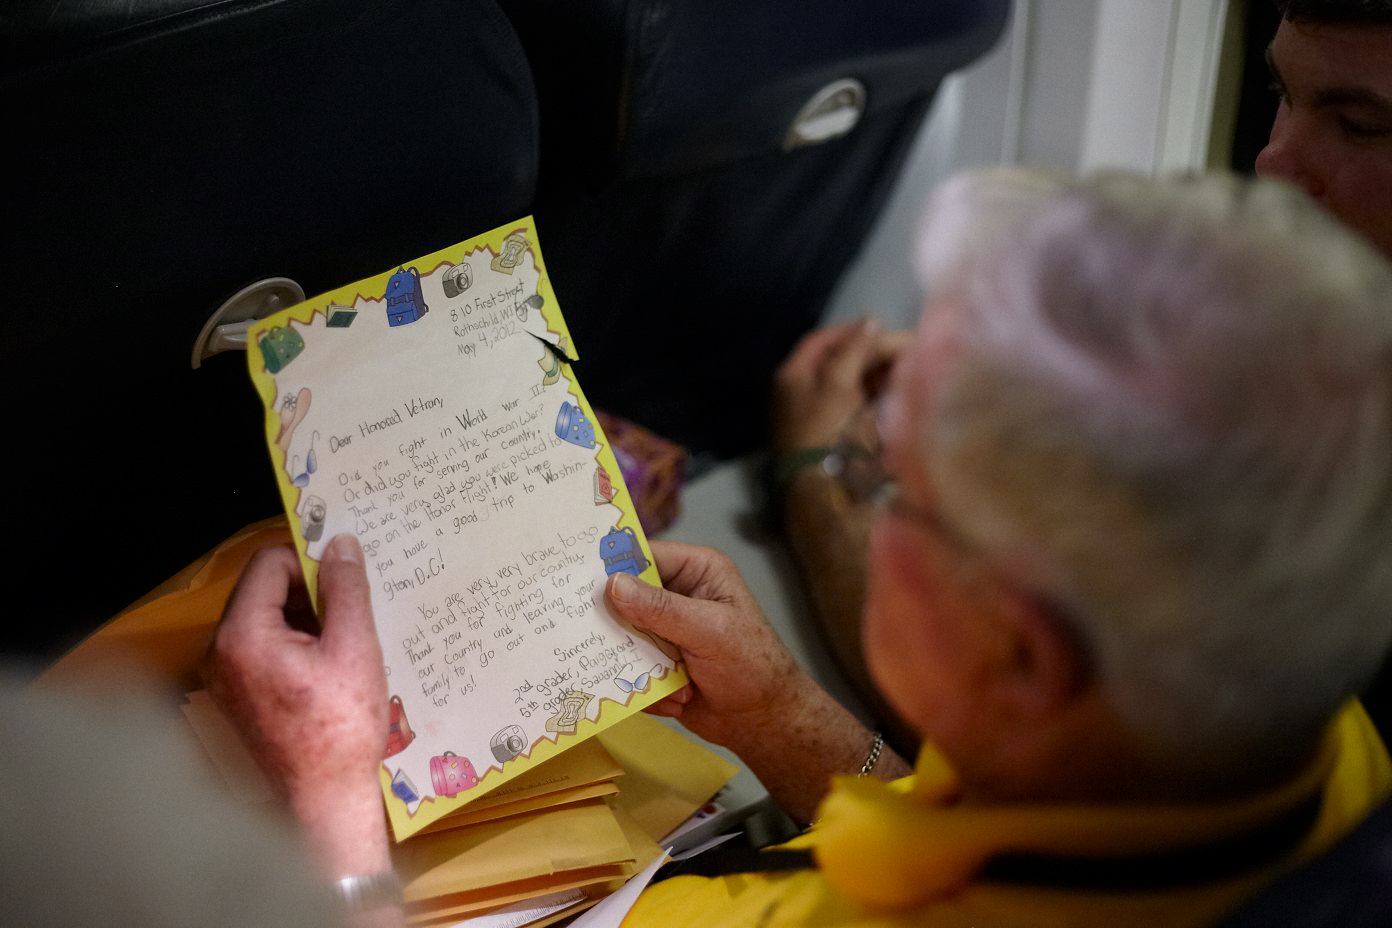 810 First Street
Rothschild, WI
May 4, 2012
Dear Honored Vetran,
Did you fight in World War II?
Or did you fight in the Korean War?
Thank you for serving our country.
We are very glad you were picked to
go on the Honor Flight! We hope
you have a good trip to Washin-
gton, D.C!
You are very, very brave to go
out and fight for our country.
Thank you for fighting for
our country and leaving your
family to go out and fight
for us!
Sincerely,
2nd grader, Paige and
5th grader, Savannah